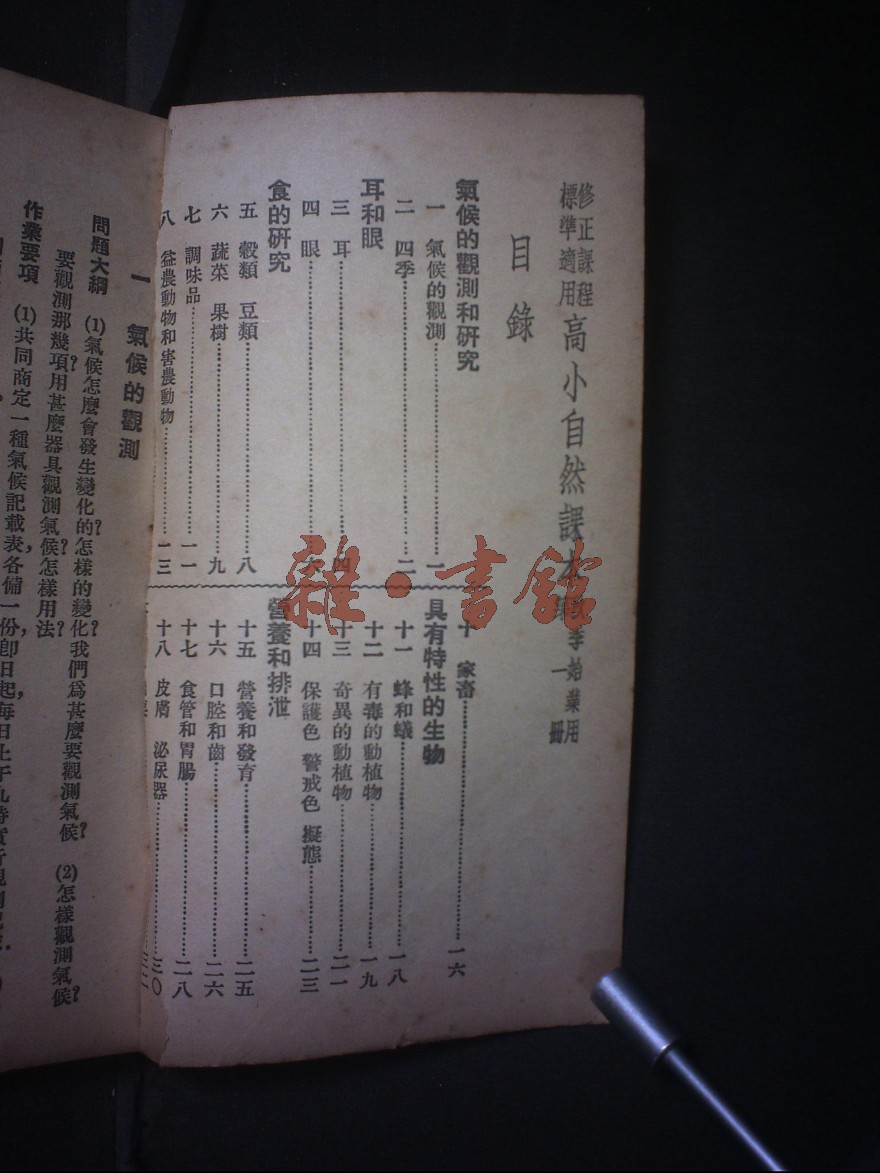 修正課程
標準適用
高小自然課本
季始業用
一冊
目錄
氣候的觀測和研究
一 氣候的觀測……一
二 四季……二
耳和眼
三 耳……四
四 眼……
食的研究
五 穀類 豆類……八
六 蔬菜 果樹……九
七 調味品……一一
八 益農動物和害農動物……一三
十 家畜……一六
具有特性的生物
十一 蜂和蟻……一八
十二 有毒的動植物……一九
十三 奇異的動植物……二一
十四 保護色 警戒色 擬態……二三
營養和排泄
十五 營養和發育……二五
十六 口腔和齒……二六
十七 食管和胃腸……二八
十八 皮膚 泌尿器……三〇
雜·書館
一 氣候的觀測
問題大綱 (1)氣候怎麼會發生變化的?怎樣的變化?我們爲甚麼要觀測氣候? (2)怎樣觀測氣候?
要觀測那幾項?用甚麼器具觀測氣候?怎樣用法?
作業要項 (1)共同商定一種氣候記載表,各備一份,卽日起,每日上午九時實行觀測